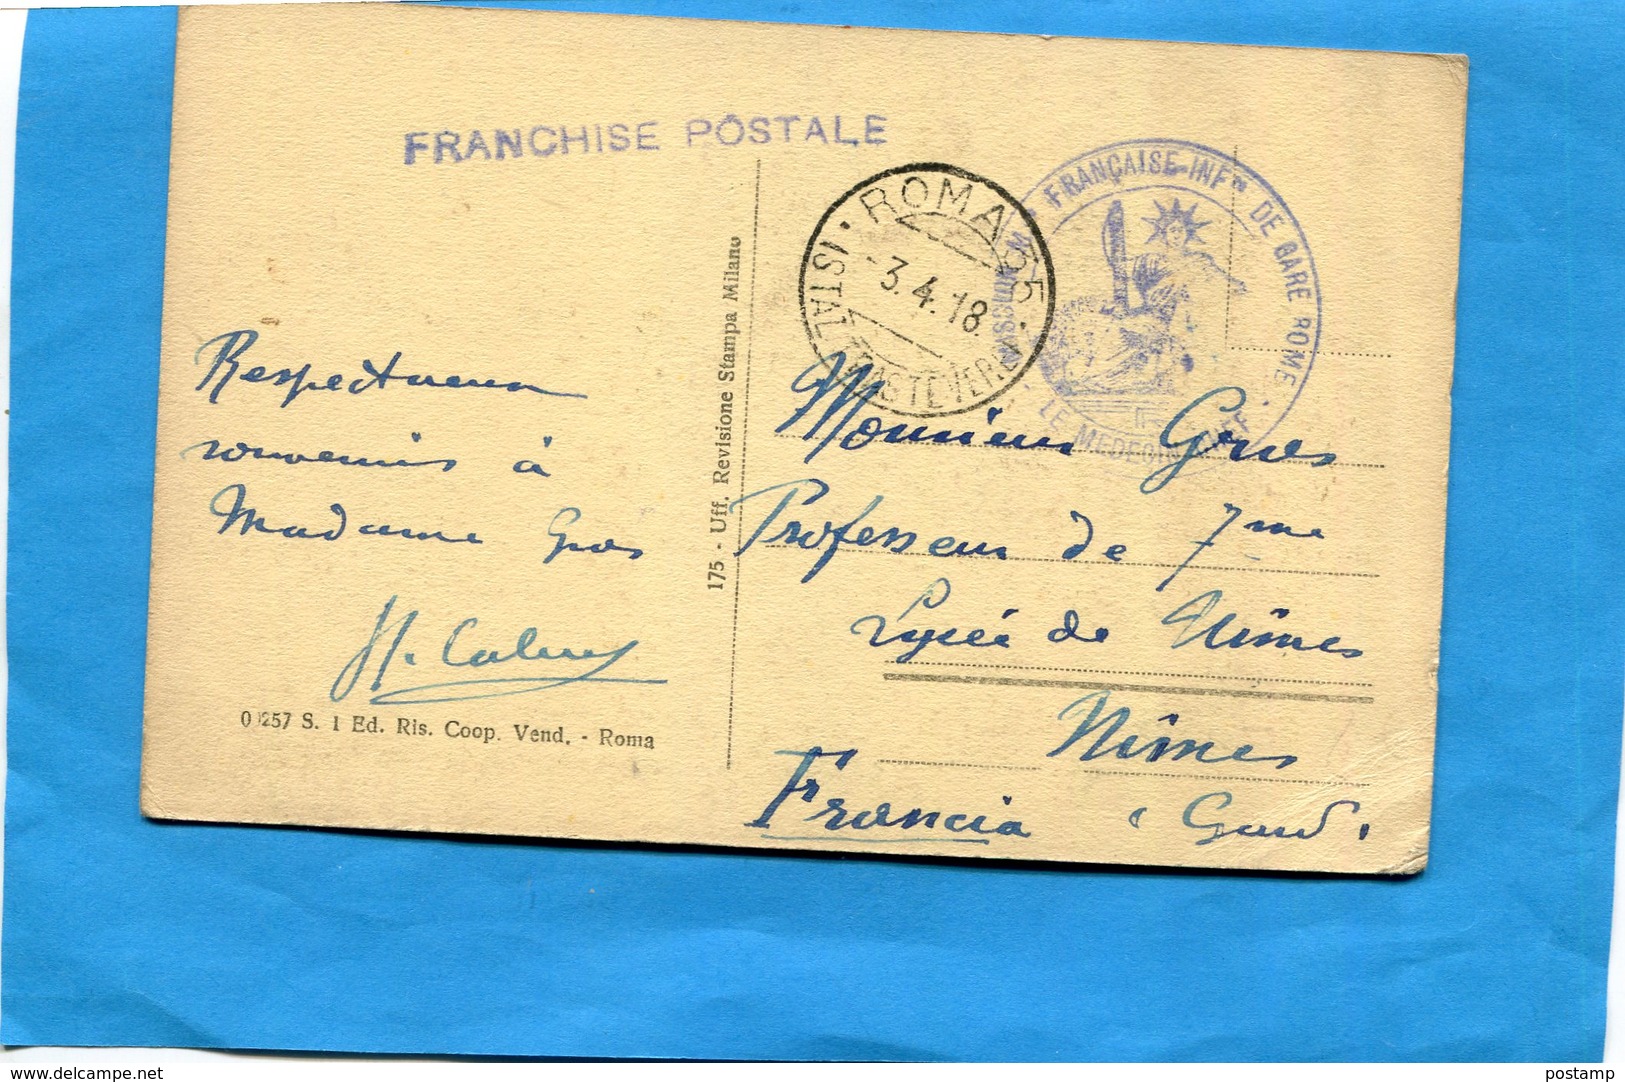 FRANCHISE POSTALE
ROMA 55
ISTAZ. TRASTEVERE
3.4.18
FRANÇAISE-INFIE DE GARE ROME
LE MEDECIN CHEF
Respectueux
souvenirs à
Madame Gros
175 - Uff. Revisione Stampa Milano
Monsieur Gros
Professeur de 7me
Lycée de Nîmes
Nîmes
Francia (Gard)
257 S. 1 Ed. Ris. Coop. Vend. - Roma
www.delcampe.net
postamp